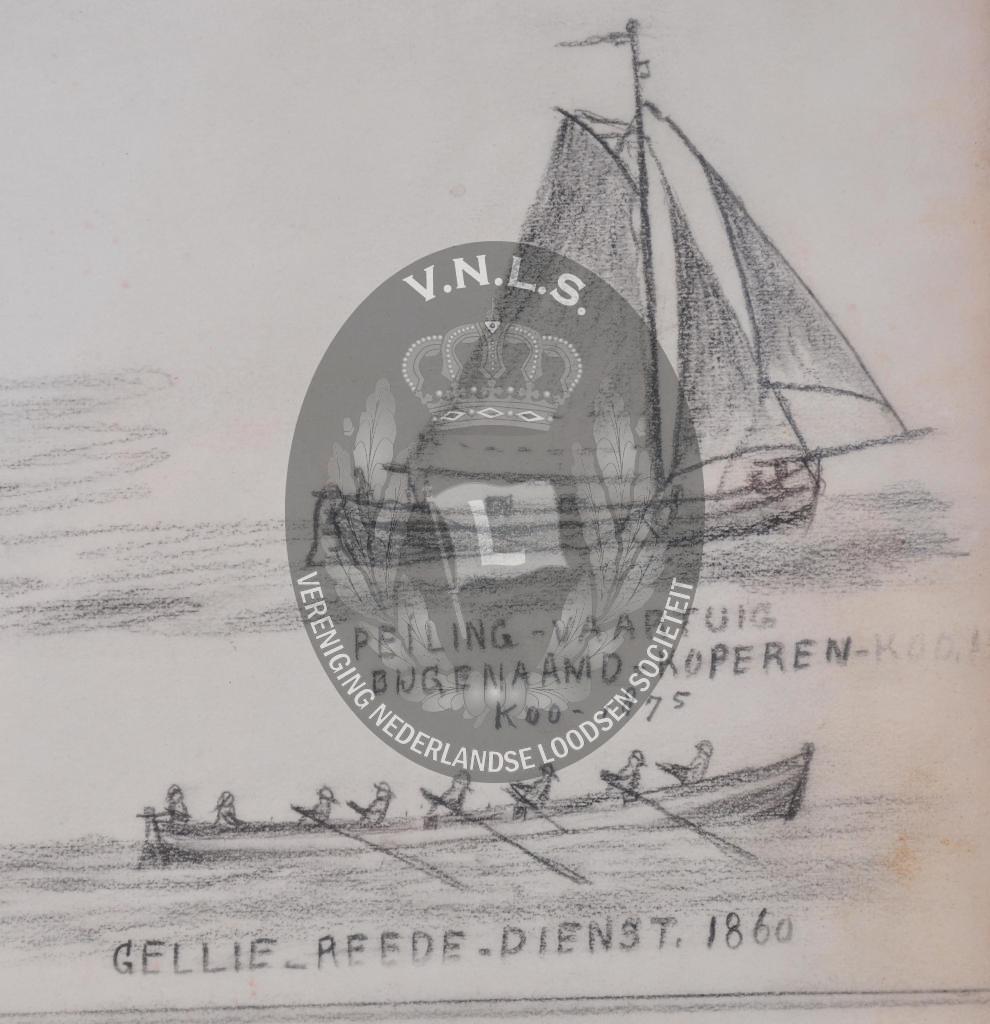 V.N.L.S.
L
VERENIGING NEDERLANDSE LOODSEN SOCIETEIT
PEILING-VAARTUIG
BIJGENAAMD-KOPEREN-
KOO-1875
GELLIE-REEDE-DIENST. 1860